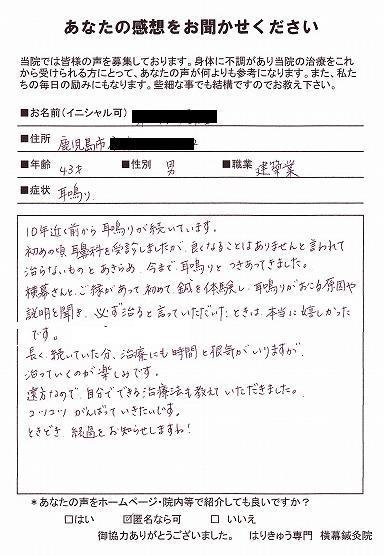 あなたの感想をお聞かせください
当院では皆様の声を募集しております。身体に不調があり当院の治療をこれ
から受けられる方にとって、あなたの声が何よりも参考になります。また、私た
ちの毎日の励みにもなります。些細な事でも結構ですのでお教え下さい。
■お名前(イニシャル可)
■住所 鹿児島市
■年齢 43才 ■性別 男 ■職業 建築業
■症状 耳鳴り
10年近く前から耳鳴りが続いています。
初めの頃耳鼻科を受診しましたが、良くなることはありませんと言われて
治らないものとあきらめ、今まで耳鳴りとつきあってきました。
横幕さんとご縁があって初めて鍼を体験し、耳鳴りがおこる原因や
説明を聞き、必ず治ると言っていただけたときは、本当に嬉しかった
です。
長く続いていた分、治療にも時間と根気がいりますが、
治っていくのが楽しみです。
遠方なので、自分でできる治療法も教えていただきました。
コツコツがんばっていきたいです。
ときどき経過をお知らせしますね!
*あなたの声をホームページ・院内等で紹介しても良いですか?
□はい ☑匿名なら可 □いいえ
御協力ありがとうございました。 はりきゅう専門 横幕鍼灸院